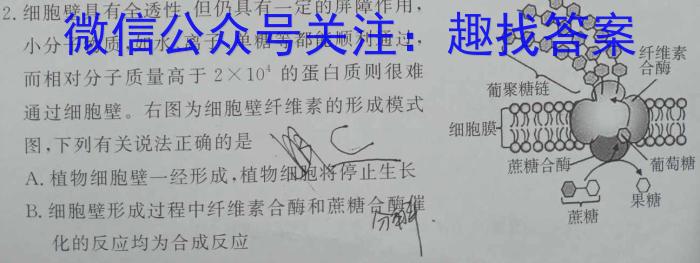 2.细胞壁具有全透性,但仍具有一定的屏障作用,
微信公众号关注：趣找答案
小分子物质,如水、离子、单糖等都能顺利通过,
而相对分子质量高于 2×10⁴ 的蛋白质则很难
通过细胞壁。右图为细胞壁纤维素的形成模式
图,下列有关说法正确的是 C
A.植物细胞壁一经形成,植物细胞将停止生长
B.细胞壁形成过程中纤维素合酶和蔗糖合酶催
分解
化的反应均为合成反应
纤维素
合酶
葡聚糖链
细胞膜
蔗糖合酶
葡萄糖
蔗糖
果糖